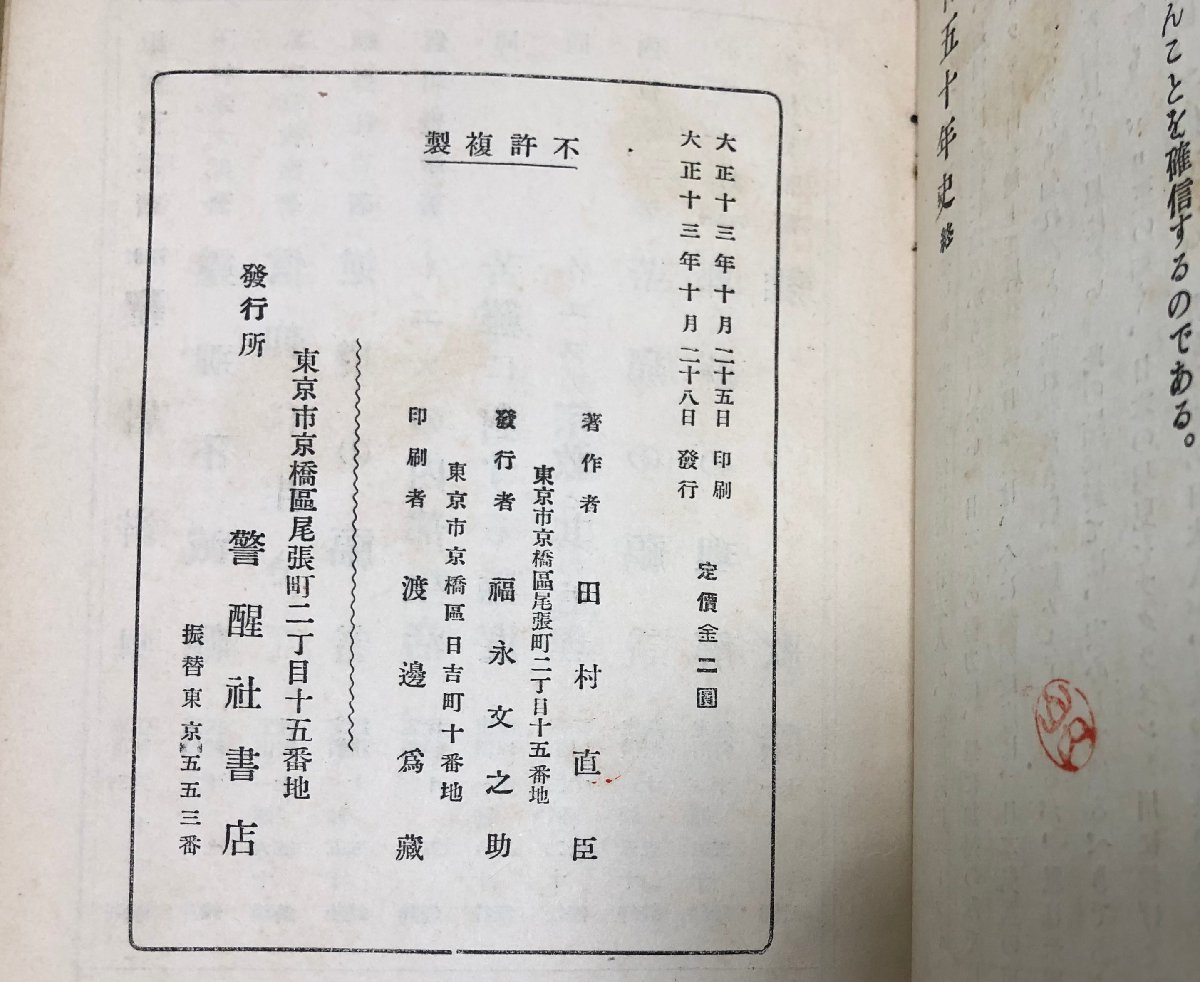 んことを確信するのである。
五十年史 終
不許複製
大正十三年十月二十五日印刷
大正十三年十月二十八日發行
定價金二圓
著作者 田村直臣
東京市京橋區尾張町二丁目十五番地
發行者 福永文之助
東京市京橋區日吉町十番地
印刷者 渡邊爲藏
東京市京橋區尾張町二丁目十五番地
發行所 警醒社書店
振替東京五五三番